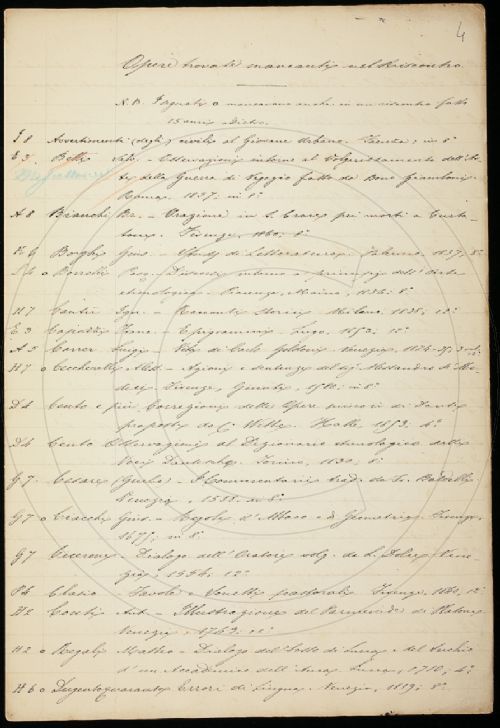 4
Opere trovate mancanti nel Riscontro
N.B. I segnati o mancavano anche in un riscontro fatto
15 anni dietro.
I 8 Avvertimenti (degli) civili al Giovane Urbano. in 8º
E 3. Betti Salv. - Osservazioni intorno al Volgarizzamento dell'Ar-
te della Guerra di Vegezio fatto da Bono Giamboni.
Roma, 1837, in 8º
A 8 Bianchi Br. - Orazione in S. Croce pei morti a Curta-
tone. Firenze, 1860, 8º
Borghi Gius. - Studj di Letteratura. Palermo, 1837, 8º
o Discorso intorno a principj dell'arte
etimologica. 1836, 8º
H 7 Cantù Ign. - Racconti storici. Milano, 1838, 12º
E 3 - Epigrammi. 1853, 12º
A 5 Carrer Luigi - Vita di Carlo Goldoni. Venezia, 1824-25, 3 vol.
H 7 o Ceccherelli Aless. - Azioni e sentenze del Sig. Alessandro de' Me-
dici. Firenze, Giunti, 1580, in 8º
D 4 Cento e più Correzioni delle Opere minori di Dante
proposte da C. Witte. Halle, 1853, 4º
D 4 Cento Osservazioni al Dizionario etimologico delle
Voci Dantesche. Torino, 1830, 8º
G 7. Cesare (Giulio) - I Commentarii trad. da Fr. Baldelli.
Venezia, 1558. in 8º
G 7 o Ciacchi Gius. - Regole d'Abbaco e di Geometria. Firenze,
1675, in 8º
G 7 Cicerone - Dialogo dell'Oratore volg. da L. Dolce. Vene-
zia, 1554, 12º
Clasio - Favole e Sonetti pastorali. Firenze, 1860, 12º
H 2 Conti Ant. - Illustrazione del Parmenide di Platone
Venezia, 1743.
H 2 o Regali Matteo - Dialogo del Fosso di Lucca e del Serchio
d'un Accademico dell'Anca. Lucca, 1710, 4º
H 6 o Dugentoquaranta Errori di Lingua. Venezia, 1839, 8º